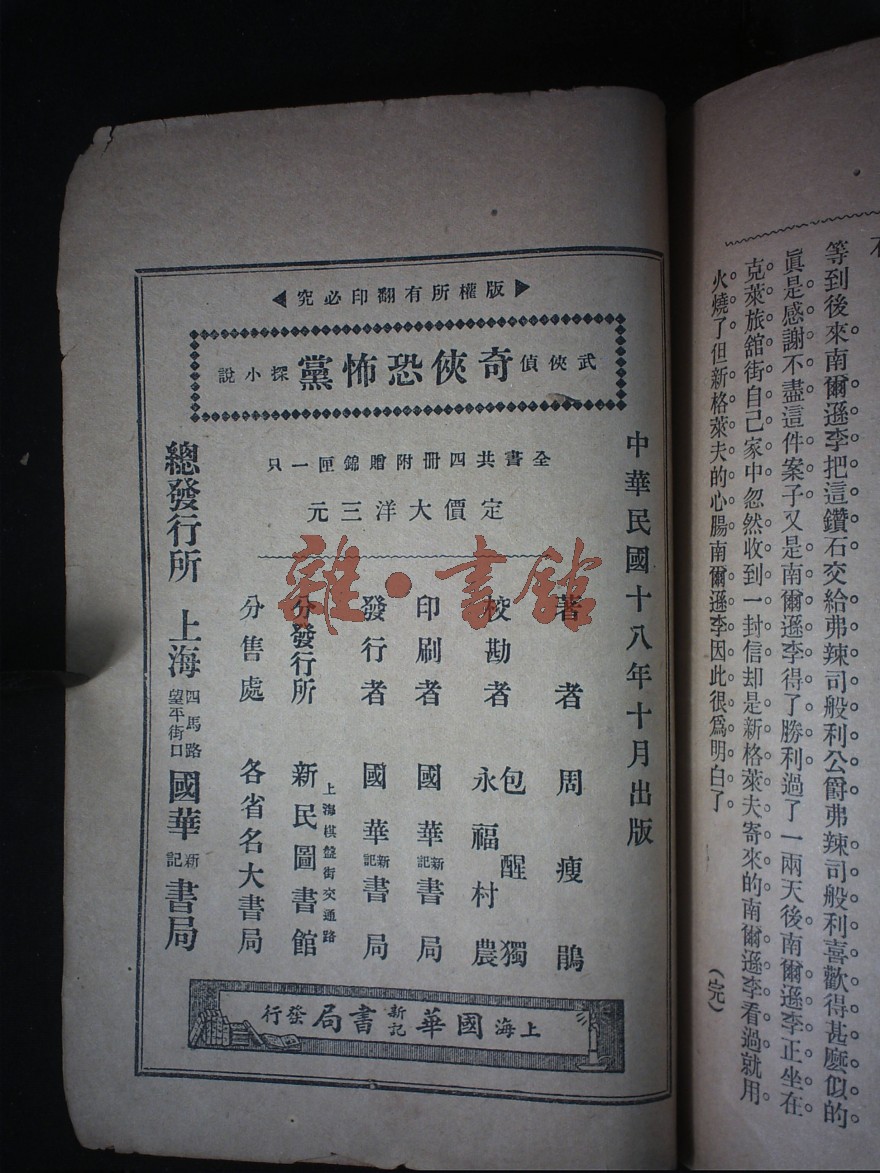 等到後來南爾遜李把這鑽石交給弗辣司般利公爵弗辣司般利喜歡得甚麼似的
眞是感謝不盡這件案子又是南爾遜李得了勝利過了一兩天後南爾遜李正坐在
克萊旅舘街自己家中忽然收到一封信却是新格萊夫寄來的南爾遜李看過就用
火燒了但新格萊夫的心腸南爾遜李因此很爲明白了。
(完)
版權所有翻印必究
武俠偵探小說
奇俠恐怖黨
中華民國十八年十月出版
全書共四冊附贈錦匣一只
定價大洋三元
著者 周瘦鵑
校勘者 包醒獨
永福村農
印刷者 國華新記書局
發行者 國華新記書局
分發行所 上海棋盤街交通路
新民圖書館
分售處 各省名大書局
總發行所 上海四馬路望平街口 國華新記書局
上海國華新記書局發行
雜·書館